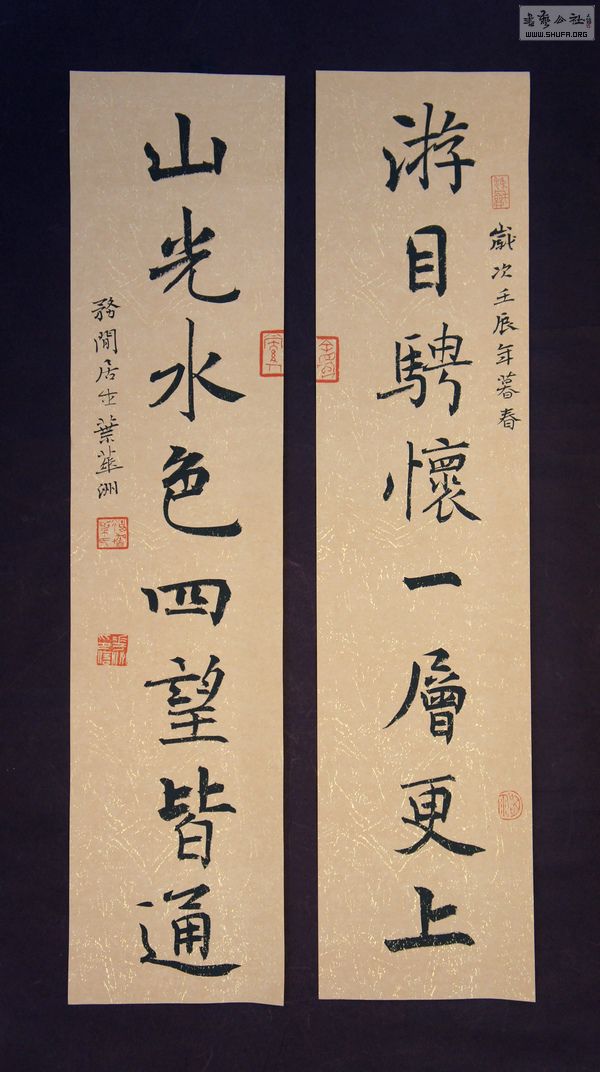 書藝公社
WWW.SHUFA.ORG
歲次壬辰年暮春
游目騁懷一層更上
山光水色四望皆通
務閒居士葉華洲